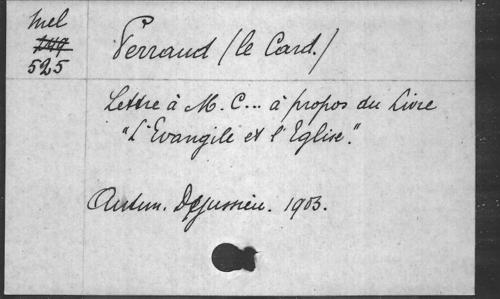 Mel
525
Perraud (le Card.)
Lettre à M. C... à propos du Livre
"L'Evangile et l'Eglise."
Autun. Dejussieu. 1903.